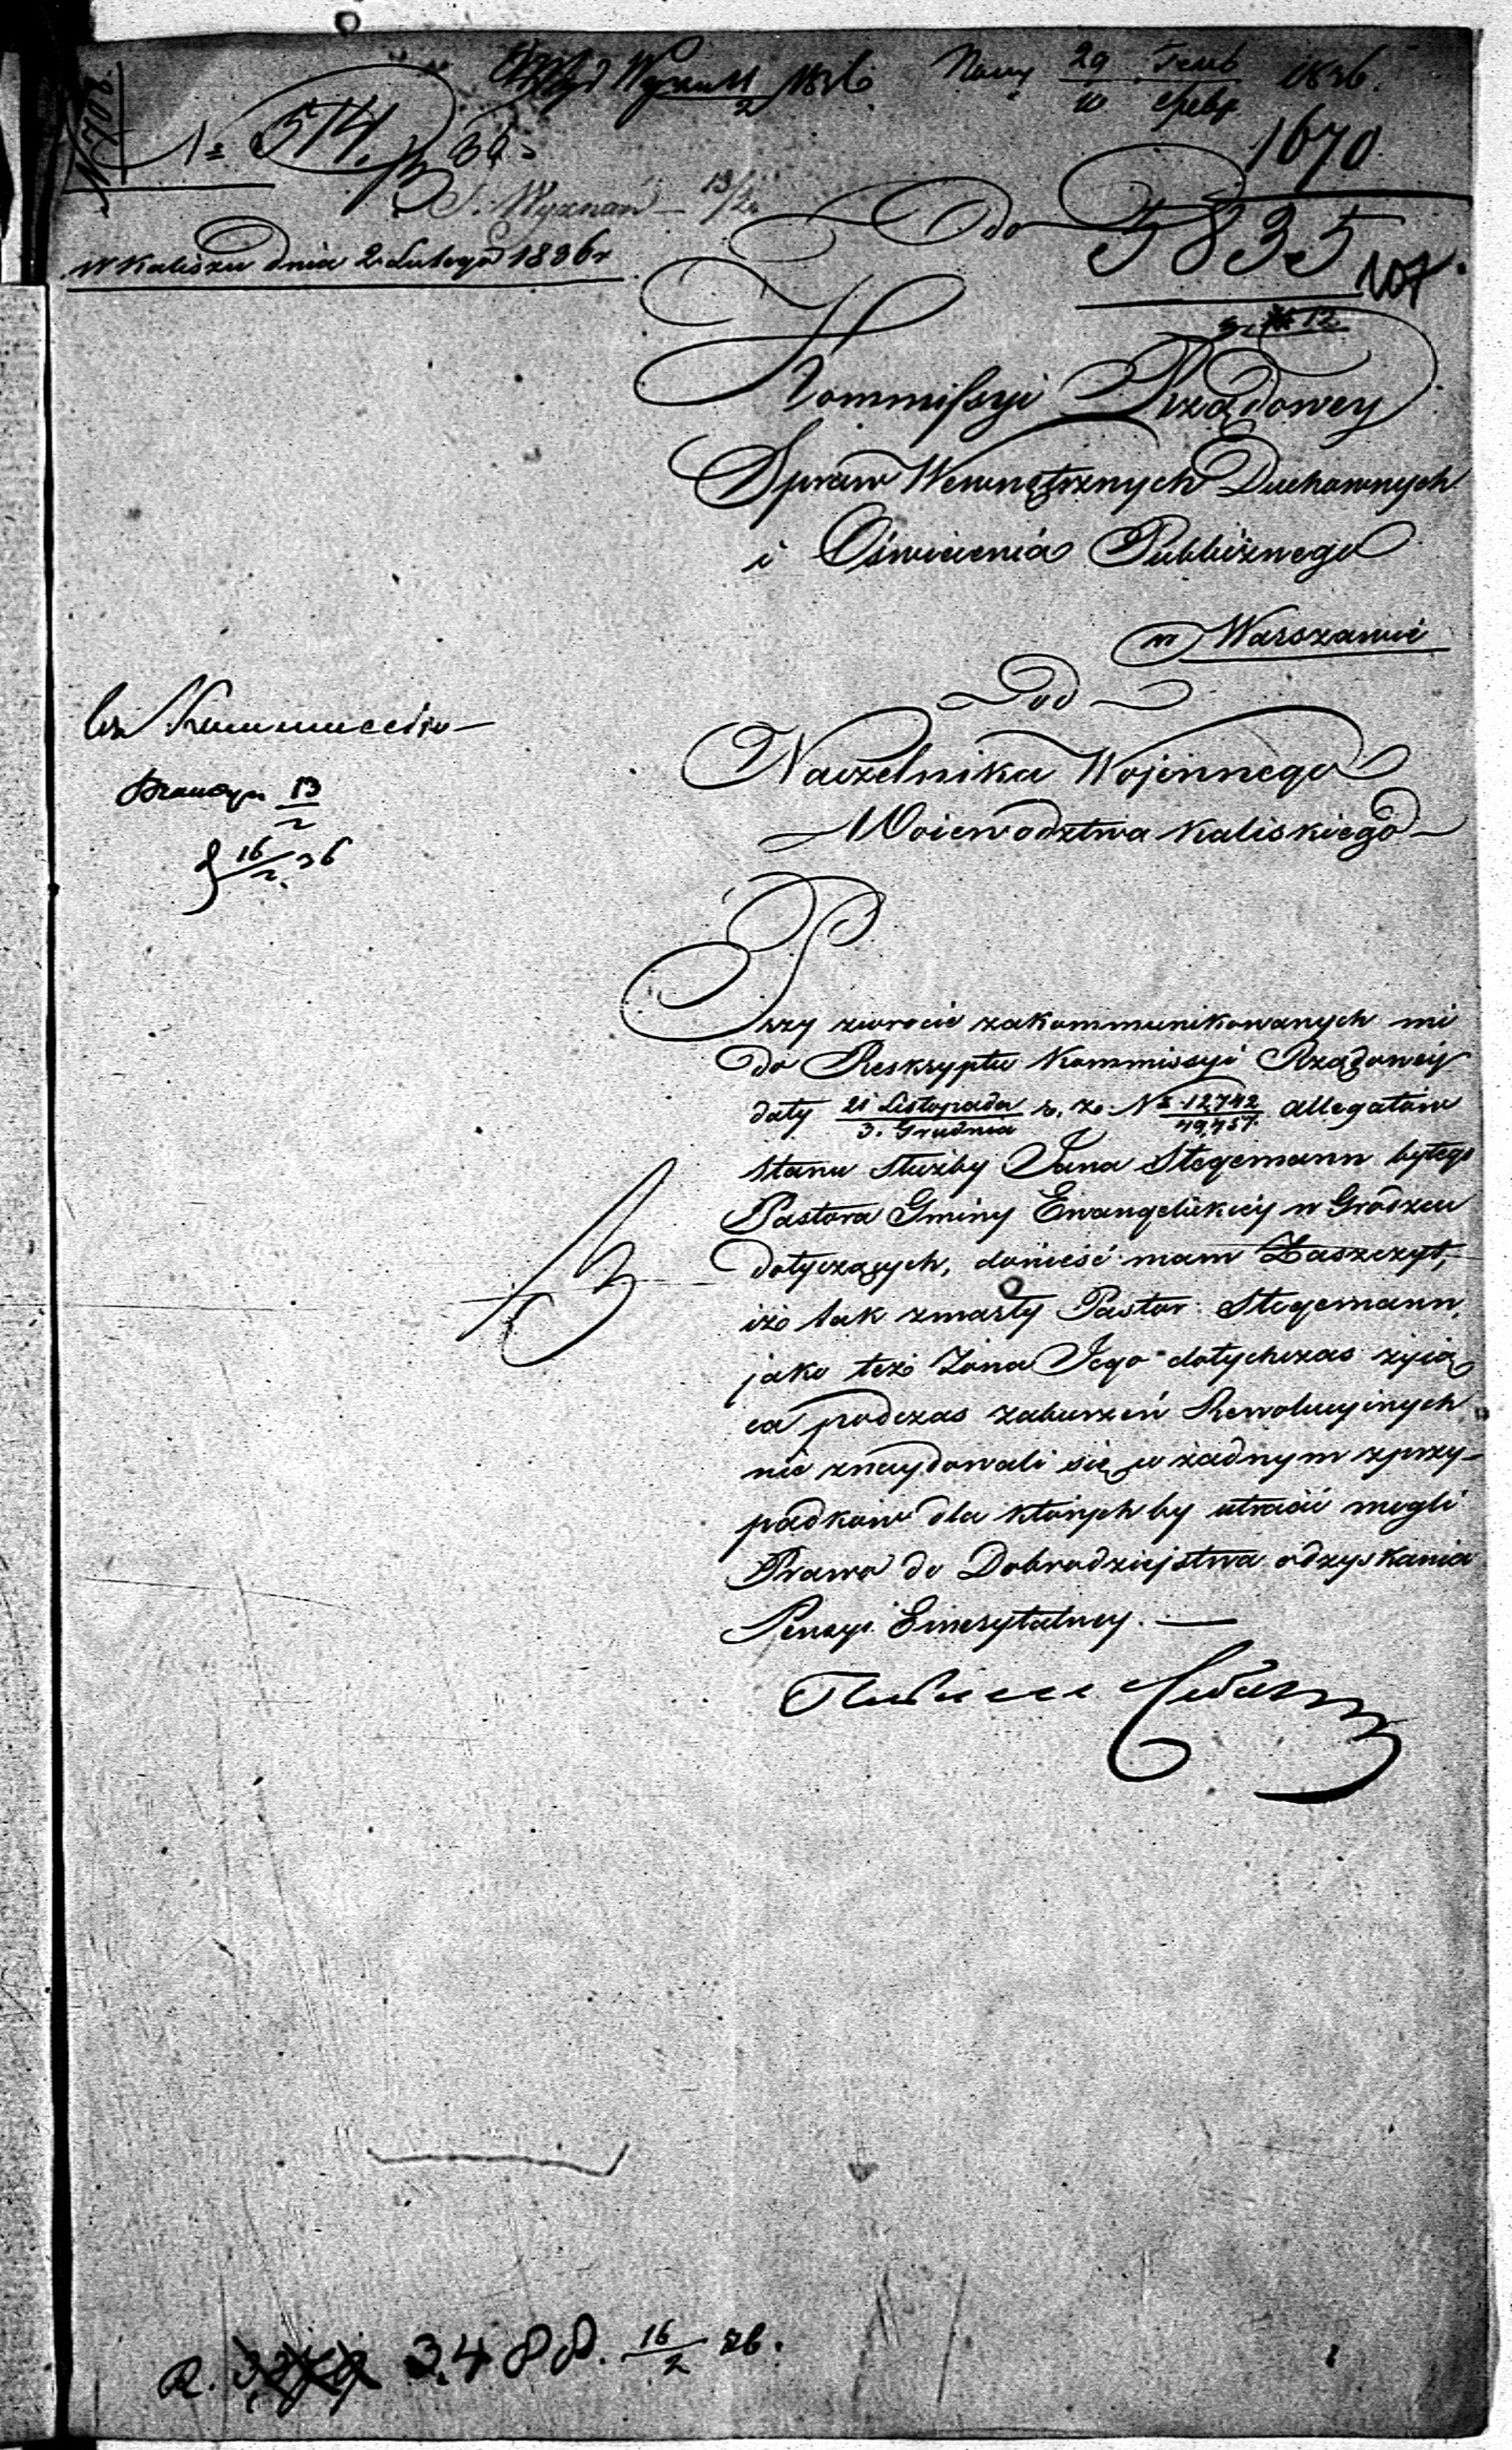 1836
29
10
1836.
1670
N 708
N= 514.
Wyznań 13/2
Do
5835
107.
12
w Kaliszu dnia 2 Lutego 1836 r
Kommissyi Rządowey
Spraw Wewnętrznych Duchownych
i Oświecenia Publicznego
w Warszawie
Od
Naczelnika Wojennego
Woiewodztwa Kaliskiego
13
16/2 36
Przy zwrocie zakommunikowanych mi
do Reskryptu Kommissyi Rządowéy
daty 21 Listopada / 3. Grudnia r. z. N= 12,742 / 49,457. allegatów
stanu służby Jana Stegemann byłego
Pastora Gminy Ewangelickiéy w Grószcu
dotyczących, donieść mam Zaszczyt,
iż tak zmarły Pastor Stegemann,
jako też Żona Jego dotychczas żyią
ca podczas zaburzeń Rewolucyinych
nie znaydowali się w żadnym z przy-
padków dla których by utracić mogli
Prawo do Dobrodziejstwa odzyskania
Pensyi Emerytalney. —
R. 3488. 16/2 36.